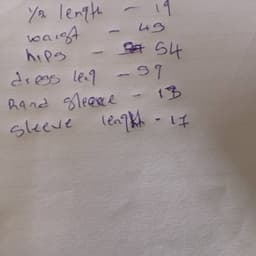 1/2 length - 19
waist - 49
hips - 54
dress leng - 59
Rand sleeve - 13
sleeve length - 17